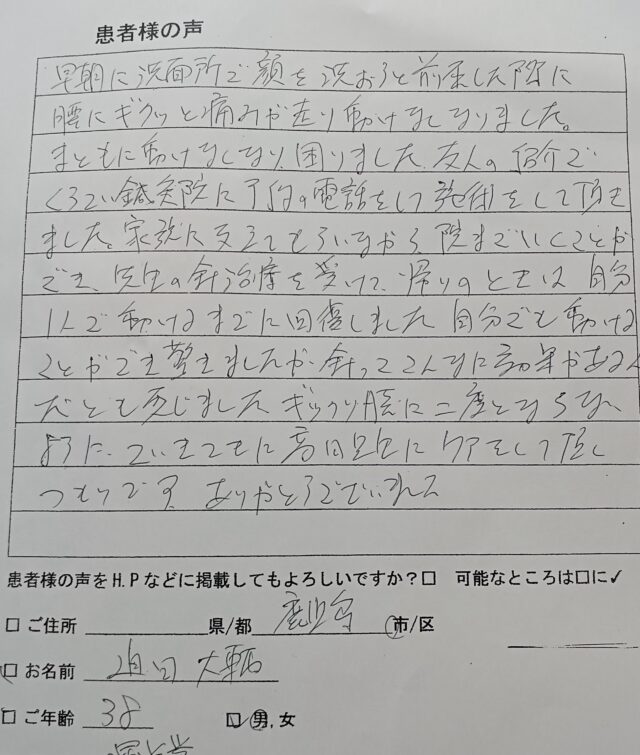 患者様の声
早朝に洗面所で顔を洗おうと前屈した際に
腰にギクッと痛みが走り動けなくなりました。
まともに動けなくなり、困りました。友人の紹介で
くろだい鍼灸院に予約の電話をして施術をして頂き
ました。家族に支えてもらいながら、院までいくことが
でき、先生の針治療を受けて、帰りのときは自分
1人で動けるまでに回復しました。自分でも動ける
ことができ驚きましたが、針ってこんなに効果があるん
だとも感じました。ギックリ腰に二度とならない
ように、定期的にケアをして頂く
つもりです。ありがとうございました
患者様の声をH.Pなどに掲載してもよろしいですか？□ 可能なところは□に✓
□ ご住所 県/都 鹿児島 市/区
□ お名前 大輔
□ ご年齢 38 □ 男,女